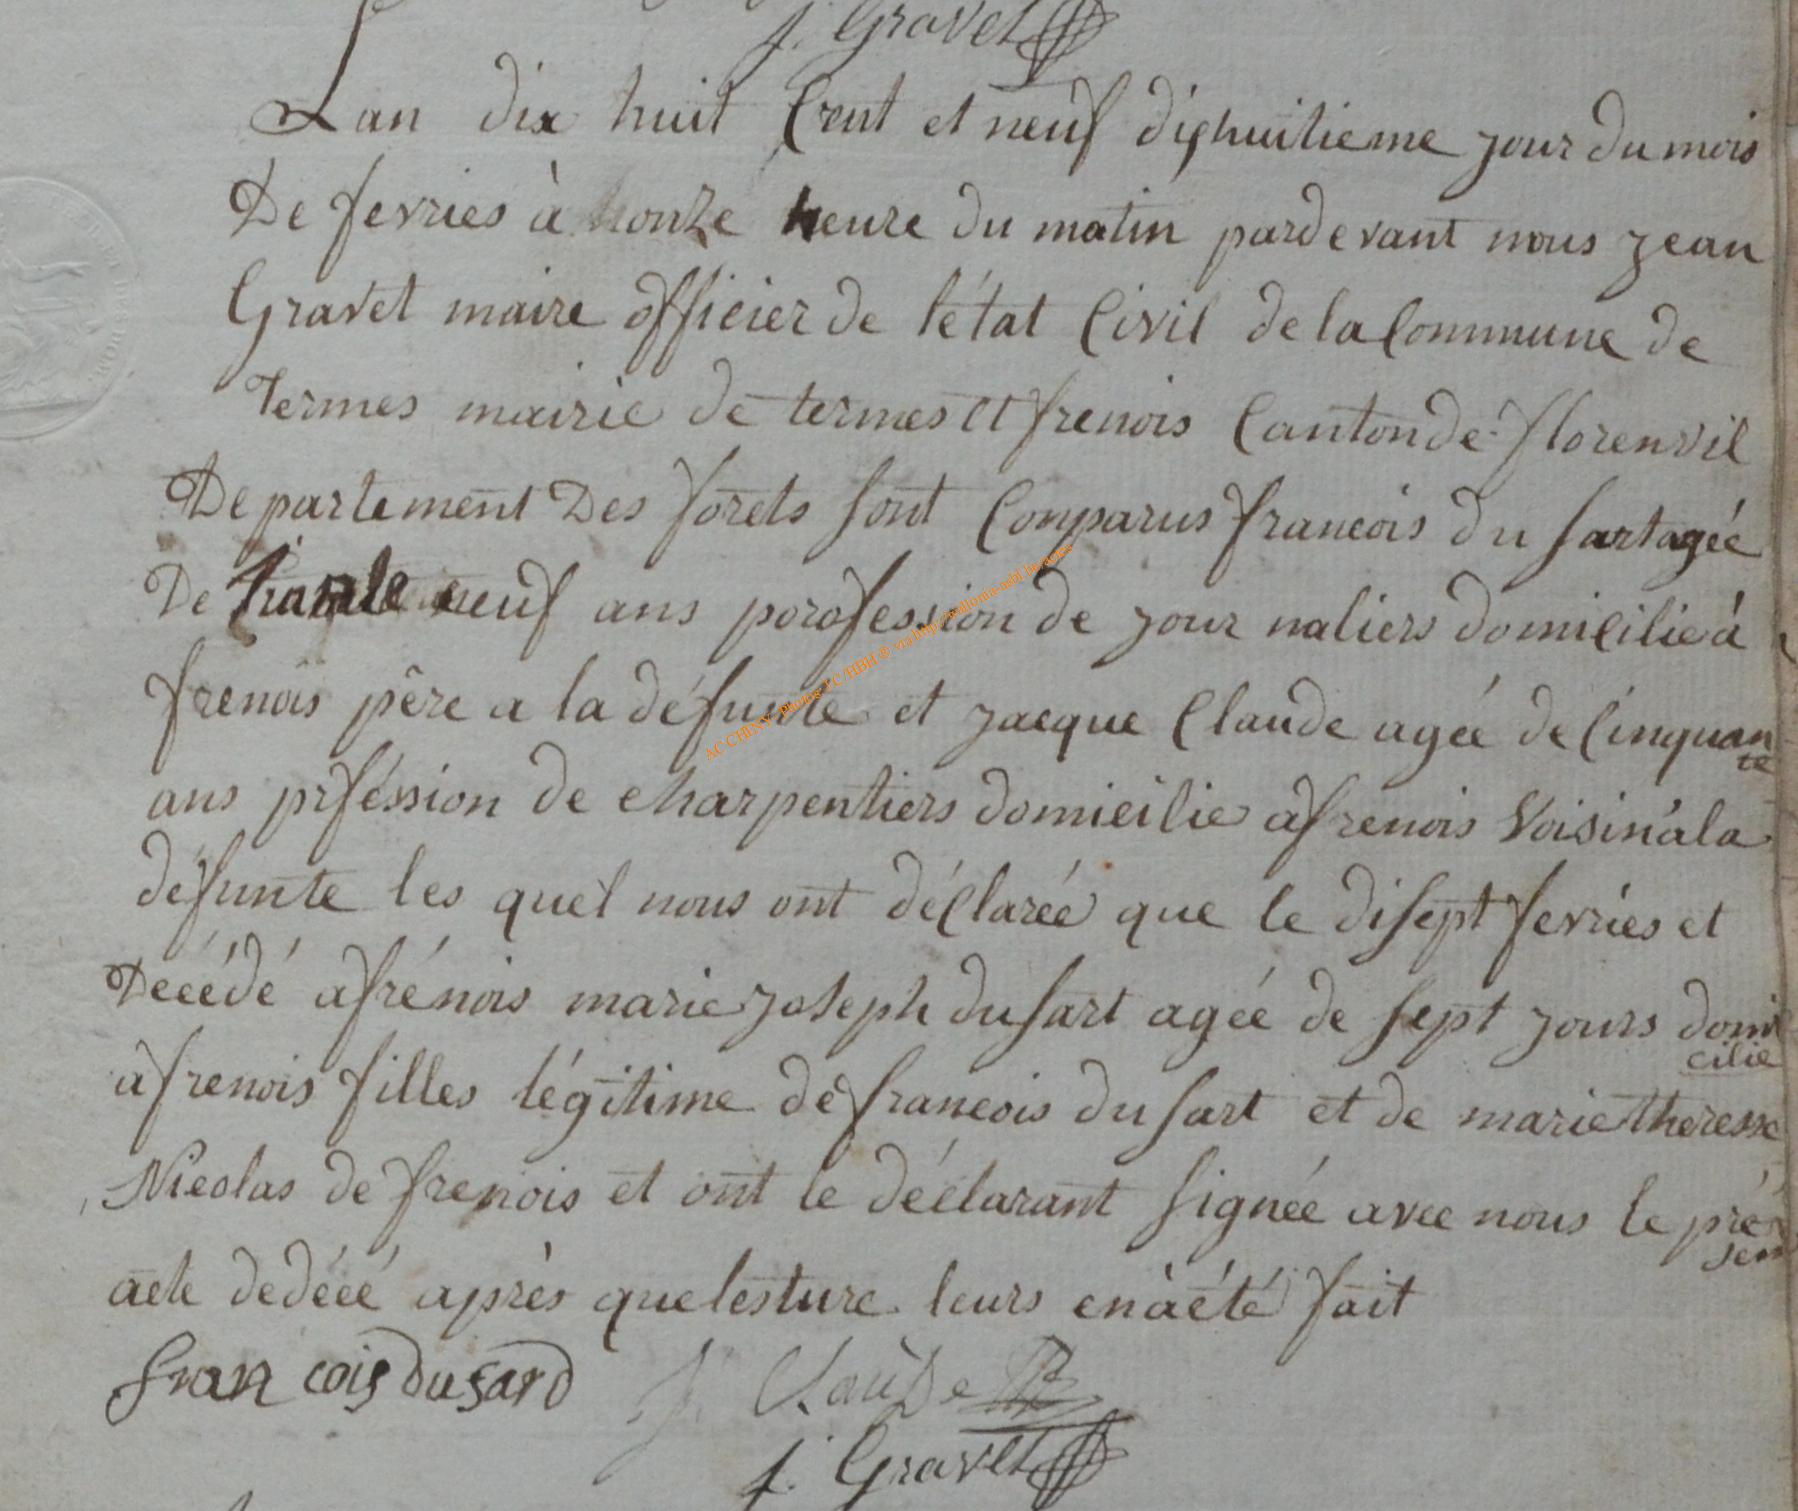 j. Gravet
Lan dix huit Cent et neuf dixhuitieme jour du mois
De fevries à honze heure du matin pardevant nous jean
Gravet maire officier de l'état Civil de la Commune de
termes mairie de termes et frenois Canton de florenvil
Departement Des forets sont Comparus francois du sart agée
De trante neuf ans porofession de jour naliers domicilie à
frenois père a la défunte et jacque Claude agée de Cinquan
te
ans proféssion de charpentiers domicilie a frenois Voisin à la
défunte les quel nous ont déClarée que le disept fevries et
Decédé a frénois marie joseph du sart agée de sept jours domi
cilie
a frenois filles légitime de francois du sart et de marie theresse
Nicolas de frenois et ont le déclarant signée avec nous le pré
sent
acte dedéce après que lesture leurs en à été fait
fran cois dusard
J. Claude
j. Gravet
AC CHINY - Photos